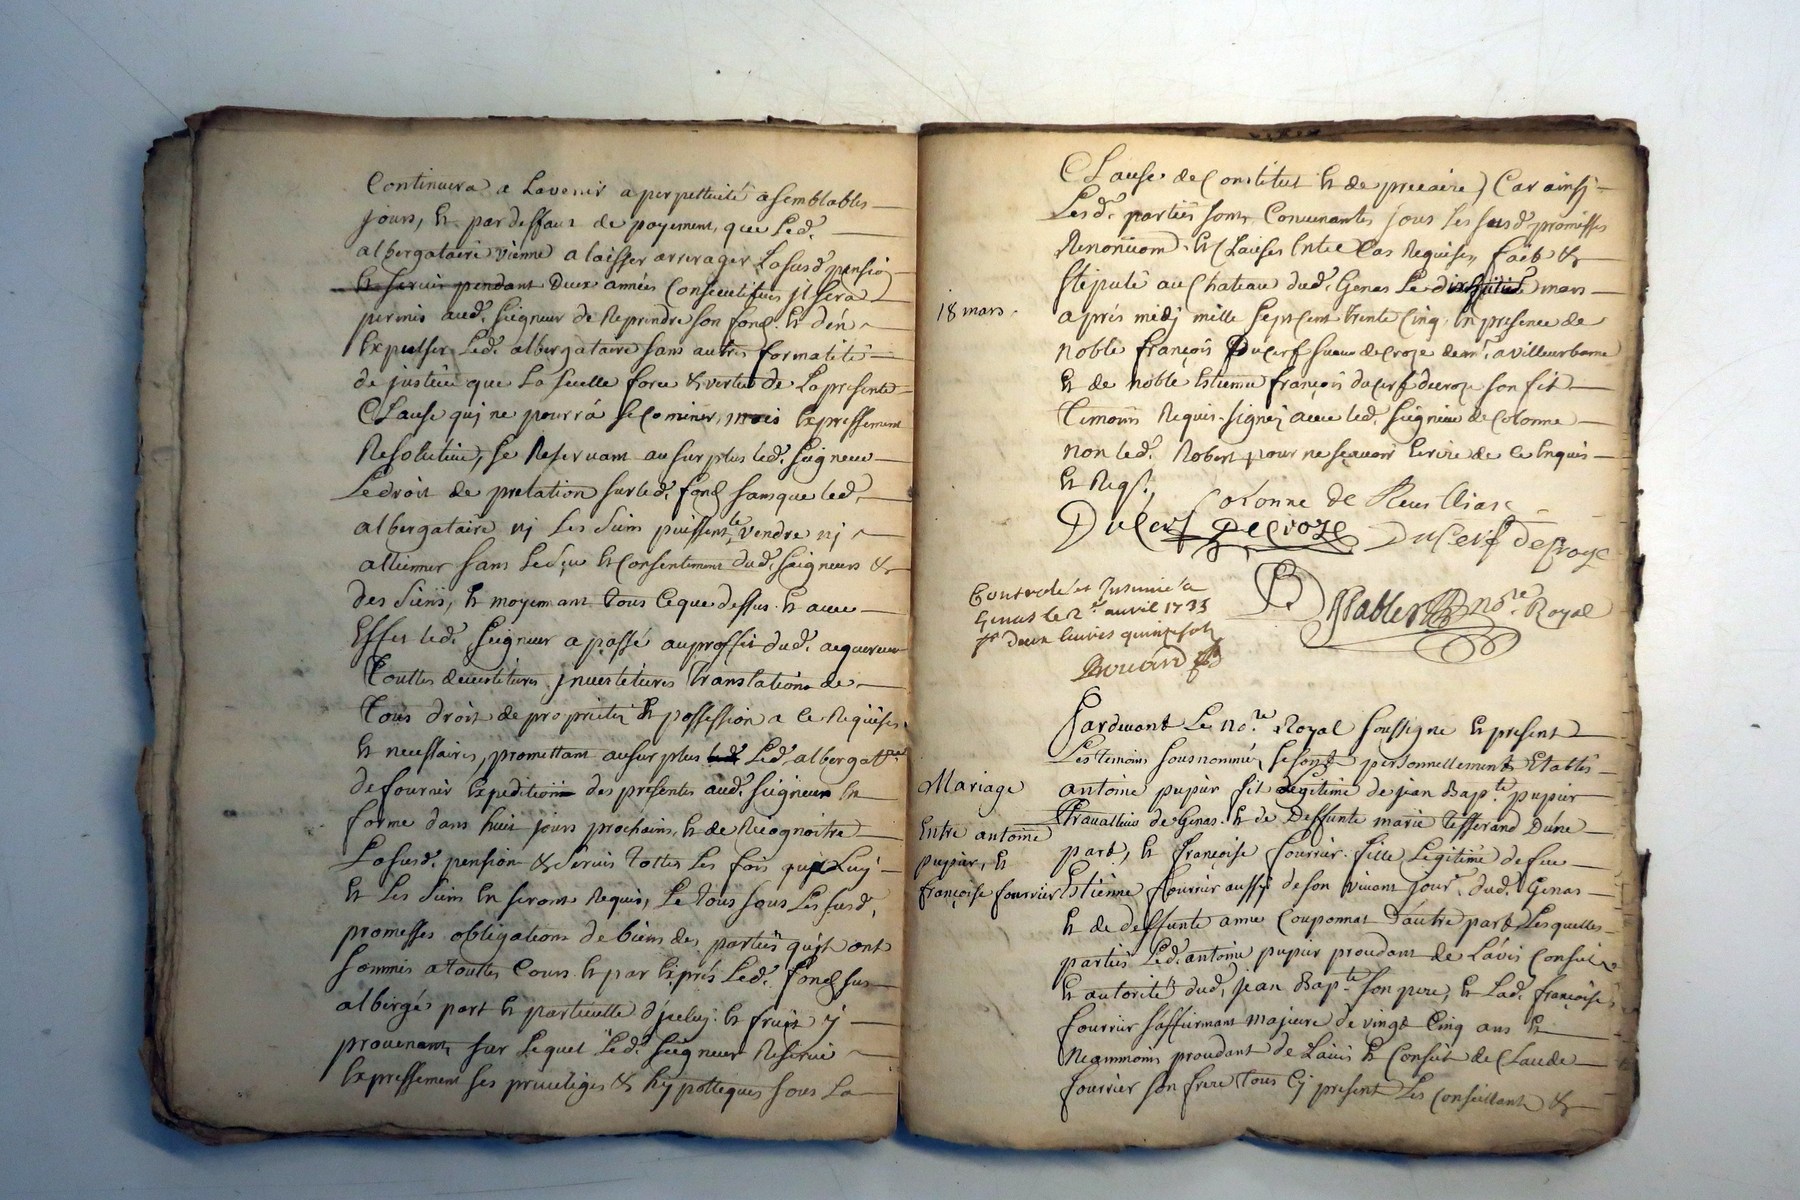 Continuera a Lavenir a perpettuité a semblables
jours, et par deffaut de payement, que Led.
albergataire vienne a laisser arrerager La susd. pension
et servir pendant Deux années Consecutifves jl sera
permis aud. Seigneur de Reprendre son fond. et d'en
Expulser Led. albergataire sans autres formalité
de justice que La seulle force & vertu de La presente
Clause quj ne pourra se Cominer, mais Expressement
Resolutive, se Reservant au surplus led. Seigneur
Le droit de prelation sur led. fond sans que led.
albergataire nj Les Siens puissent le vendre nj
allienner sans Le sçu et Consentement dud. Seigneur &
des Siens, et moyenant tous ce que dessus et avec
Effet led. Seigneur a passé au proffit dud. acquereur
Touttes devestitures, jnvestitures translation de
Tous droit de proprieté et possession a ce Requises
et necessaires, promettant au surplus Led. albergat.re
de fournir Expedition des presentes aud. Seigneur En
forme dans huit jours prochains, et de Recognoitre
La susd. pension & Servis tottes Les fois que Luy
et Les Siens En seront Requis, Le tous sous Les susd.
promesses obligations de biens des parties qu'jls ont
sommis a touttes Cours et par Exprés Led. fond sus
albergé part et particulle d'jceluy et fruits y
provenant, sur Lequel Led. Seigneur Reserve
Expressement ses privileges & hypotteques sous La
Clause de Constitut et de precaire, Car ainsj
Lesd. parties sont Convenantes sous Les susd. promesses
Renoncion. et Clauses Entre Cas Requises, fait &
stipulé au Chateau dud. Genas Le dixhuitié mars
18 mars.
aprés midj mille Sept cent trente Cinq, En presence de
noble françois Ducerf sieur de Croze dem.t a villeurbanne
et de noble Estienne françois ducerf decroze son fils
Temoins Requis. signéz avec led. Seigneur de Colonne
non led. Robert pour ne sçavoir Ecrire de ce Enquis
et Reqs.
Colonne de
DuCerf DeCroze DuCerf deCroze
Controlé et Jnsinué a
Genas le 2.e avril 1735
deux livres quinze sols
Stabler no.re Royal
Pardevant Le No.re Royal soussigné et present
Les temoins sous nommé, se sont personnellement Etablis
Mariage
Entre antoine
pupier, et
françoise fourrier
antoine pupier fils Legitime de jean Bap.te pupier
travailleur de Genas. et de Deffunte marie tisserand D'une
part, et françoise fourrier fille Legitime de feu
Estienne fourrier aussy de son vivant jour.r dud. Genas
et de deffunte anne Couponnat D'autre part, Lesquelles
parties Led. antoine pupier procedant de L'avis Conseil
et autorité dud. jean Bap.te son pere, et Lad. françoise
fourrier s'affirmant majeure de vingt Cinq ans et
Neammoins procedant de L'avis et Conseil de Claude
fourrier son frere tous Cy present Les Conseillants &